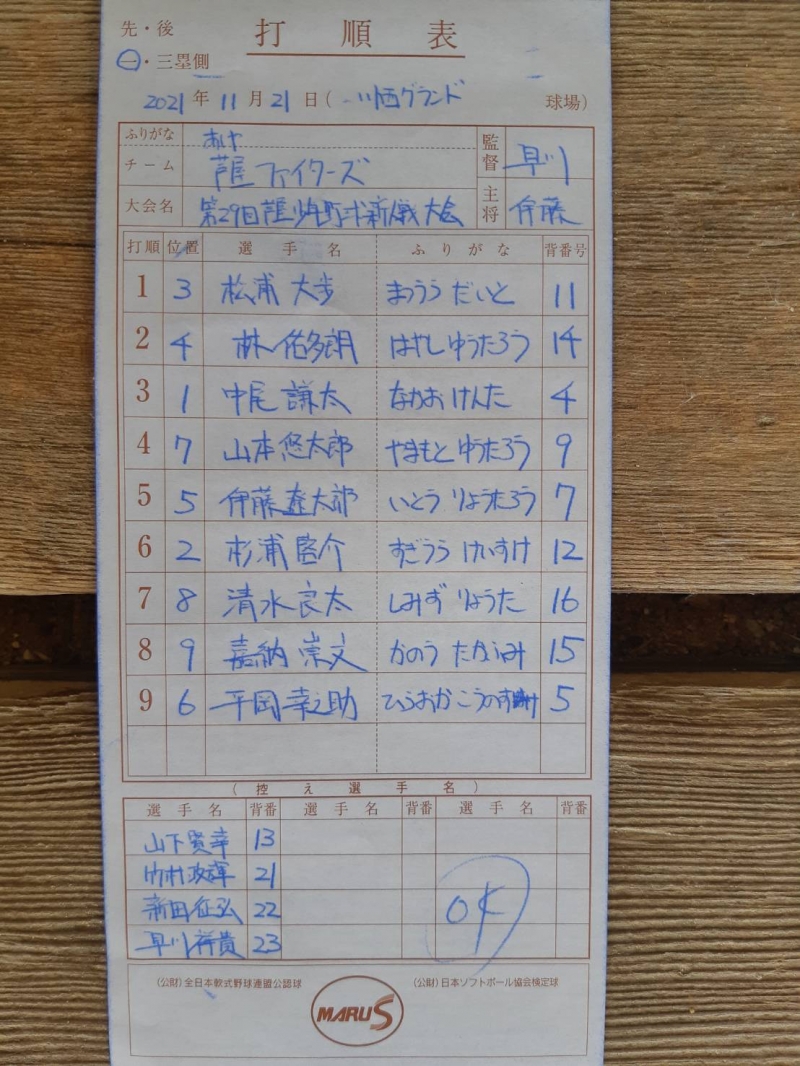 先・後 打順表
一・三塁側
2021年 11月 21日( 川西グランド 球場)
ふりがな あしや
チーム 芦屋ファイターズ 監督 早川
大会名 第29回 大会 主将 伊藤
打順 位置 選手名 ふりがな 背番号
1 3 松浦 大歩 まつうら だいと 11
2 4 林 佑多朗 はやし ゆうたろう 14
3 1 中尾 謙太 なかお けんた 4
4 7 山本 悠太郎 やまもと ゆうたろう 9
5 5 伊藤 遼太郎 いとう りょうたろう 7
6 2 杉浦 啓介 すぎうら けいすけ 12
7 8 清水 良太 しみず りょうた 16
8 9 嘉納 崇文 かのう たかふみ 15
9 6 平岡 幸之助 ひらおか こうのすけ 5
(控え選手名)
選手名 背番 選手名 背番 選手名 背番
山下 賢幸 13
竹村 政輝 21
新田 征弘 22
早川 祥貴 23
OK
(公財)全日本軟式野球連盟公認球 (公財)日本ソフトボール協会検定球
MARU S